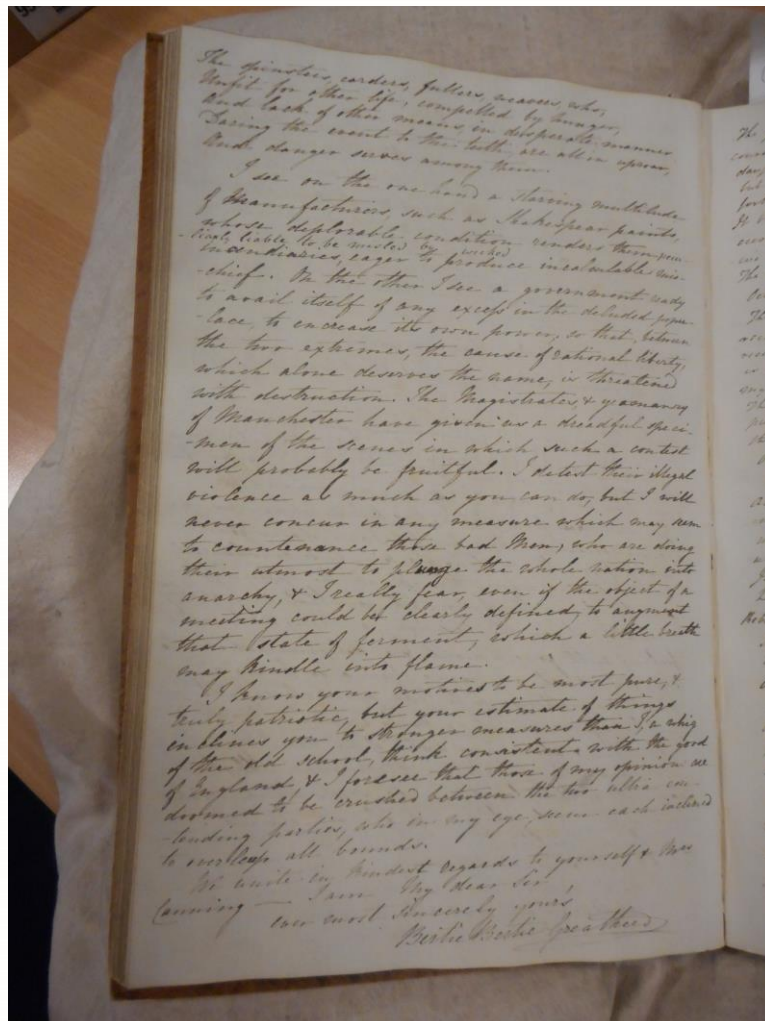 The spinsters, carders, fullers, weavers, who,
Unfit for other life, compelled by hunger,
And lack of other means, in desperate manner
Daring the event to the teeth, are all in uproar,
And danger serves among them.
I see on the one hand a starving multitude
of Manufacturers, such as Shakespear paints,
whose deplorable condition renders them pecu-
-liarly liable to be misled by wicked
incendiaries, eager to produce incalculable mis-
-chief. On the other I see a government ready
to avail itself of any excess in the deluded popu-
-lace, to increase its own power, so that, between
the two extremes, the cause of rational liberty,
which alone deserves the name, is threatened
with destruction. The Magistrates, & yeomanry
of Manchester have given us a dreadful speci-
-men of the scenes in which such a contest
will probably be fruitful. I detest their illegal
violence as much as you can do, but I will
never concur in any measure which may seem
to countenance those bad Men, who are doing
their utmost to plunge the whole nation into
anarchy, & I really fear, even if the object of a
meeting could be clearly defined, to augment
that state of ferment, which a little breath
may kindle into flame.
I know your motives to be most pure, &
truly patriotic, but your estimate of things
inclines you to stronger measures than I, a whig
of the old school, think consistent with the good
of England, & I foresee that those of my opinion are
doomed to be crushed between the two ultra con-
-tending parties, who in my eye, seem each inclined
to overleap all bounds.
We unite in kindest regards to yourself & Mrs
Canning — I am My dear Sir
ever most sincerely yours,
Bertie Bertie Greatheed